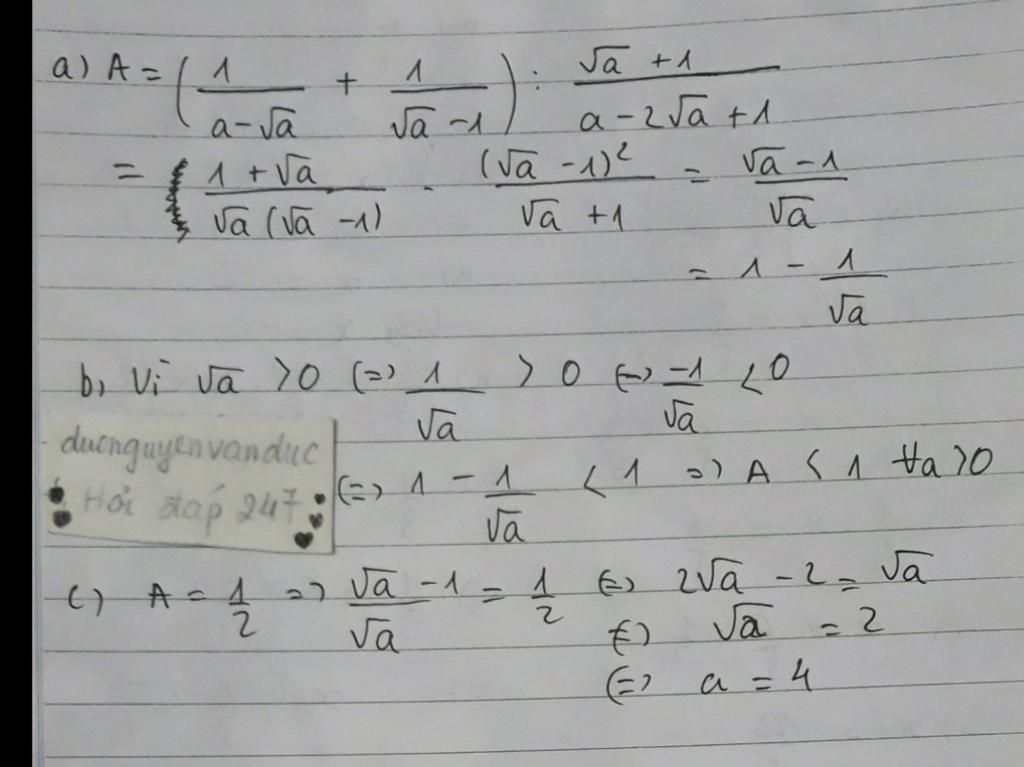 a) A = ( 1/(a-√a) + 1/(√a-1) ) : (√a+1)/(a-2√a+1)
= (1+√a)/(√a(√a-1)) . (√a-1)²/(√a+1) = (√a-1)/√a
= 1 - 1/√a
b) Vì √a > 0 (=) 1/√a > 0 (=) -1/√a < 0
ducnguyenvanduc
Hỏi đáp 247
(=) 1 - 1/√a < 1 => A < 1 ∀a>0
c) A = 1/2 => (√a-1)/√a = 1/2 (=) 2√a - 2 = √a
(=) √a = 2
(=) a = 4